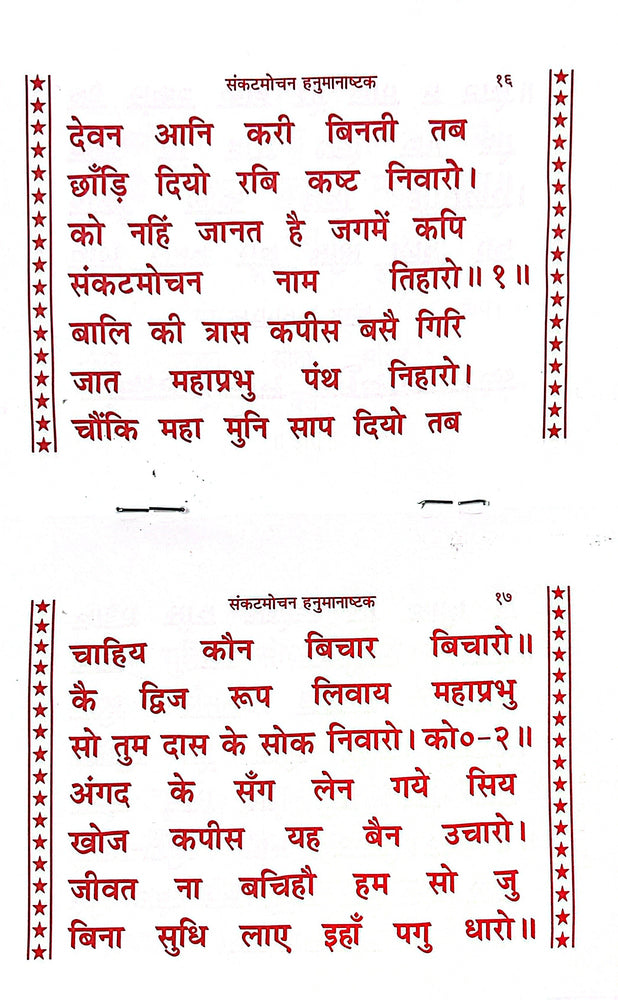 संकटमोचन हनुमानाष्टक १६
देवन आनि करी बिनती तब
छाँड़ि दियो रबि कष्ट निवारो।
को नहिं जानत है जगमें कपि
संकटमोचन नाम तिहारो॥१॥
बालि की त्रास कपीस बसै गिरि
जात महाप्रभु पंथ निहारो।
चौंकि महा मुनि साप दियो तब
संकटमोचन हनुमानाष्टक १७
चाहिय कौन बिचार बिचारो॥
कै द्विज रूप लिवाय महाप्रभु
सो तुम दास के सोक निवारो।को०-२॥
अंगद के सँग लेन गये सिय
खोज कपीस यह बैन उचारो।
जीवत ना बचिहौ हम सो जु
बिना सुधि लाए इहाँ पगु धारो॥